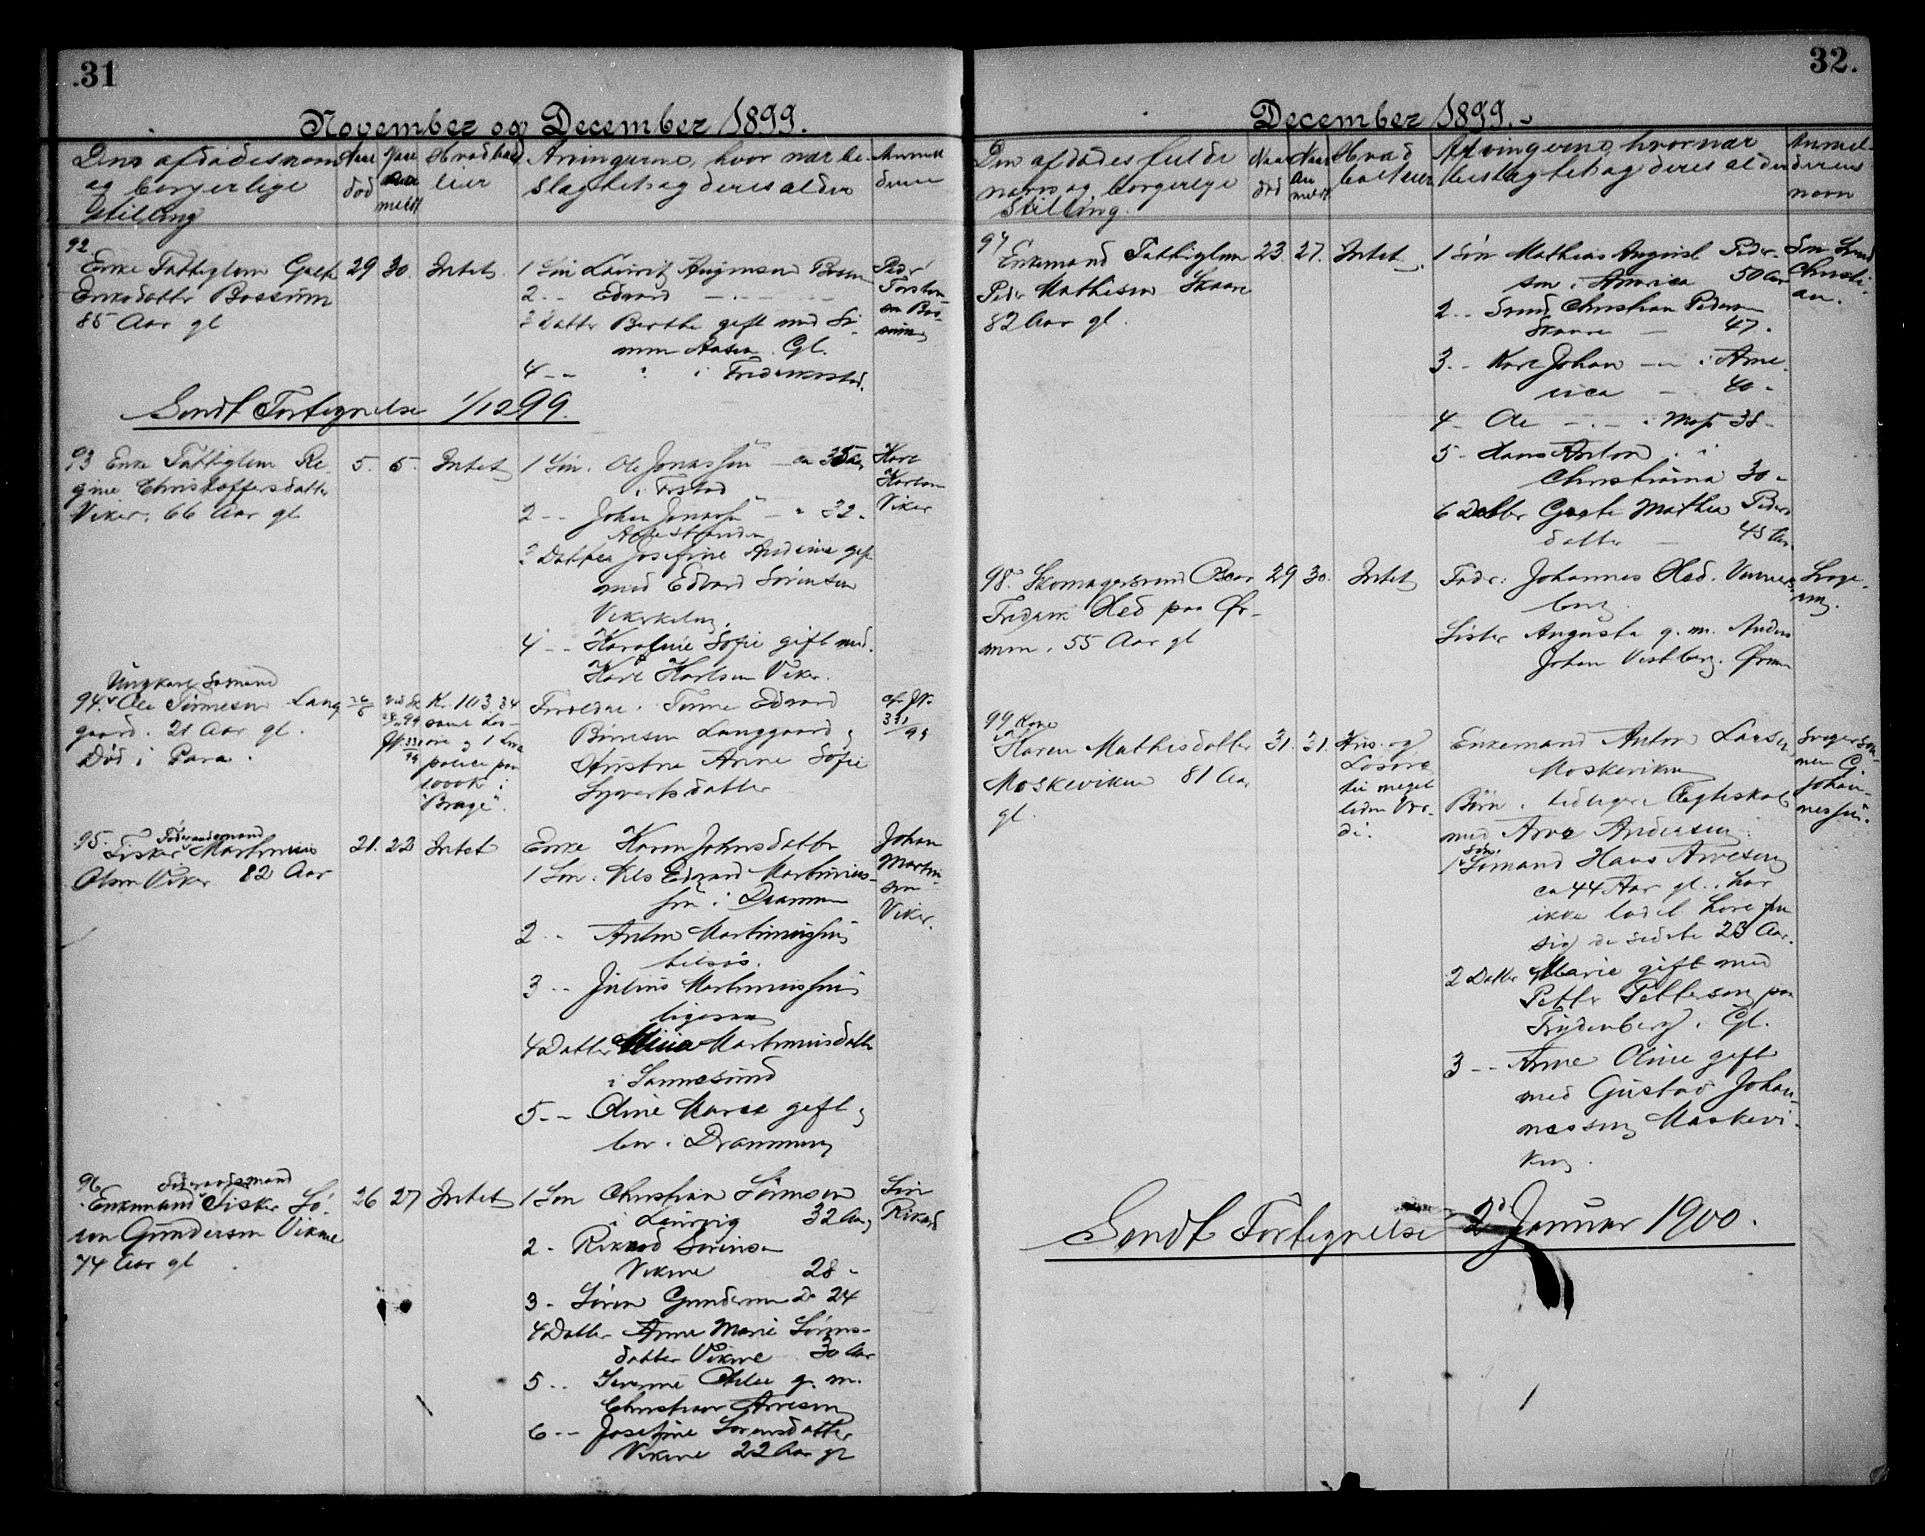 31
November og December 1899.
Den afdødes navn
og borgerlige
Stilling
Naar
død
Naar
an
meldt
Hvad boet
eier
Arvingerne, hvor nær be
slægtet og deres alder
Anmel
deren
92
Enke Fattiglem
Bossum
85 Aar gl
29
30.
Intet
1 Søn Laurits
2 - - Edvard
3 Datter Berthe gift med Si
mon Aasen. Gl.
4 - - " i Fredriksstad.
Peder
Torsten
sen Bos
sum
Sendt Fortegnelse 1/12 99.
93 Enke Fattiglem Re-
gine Christoffersdatter
Viker. 66 Aar gl
5.
5.
Intet
1 Søn. Ole Jonassøn - ca 35 Aar
2 - - Johan Jonassøn - " 32 -
3 Datter Josefine Andrine gift
med Edvard Sørensen
Vikerkilen
4 - - Karoline Sofie gift med
Karl Karlsen Viker.
Karl
Karlsen
Viker
Ungkarl Sømand
94. Ole Tørresen Lang
gaard. 21 Aar gl.
Død i Para.
Kr. 103,34
samt Løs-
øre og 1 Livs
police paa
1000 Kr i
"Brage".
Forældre. Tørre Edvard
Børresen Langgaard og
Anne Sofie
Syvertsdatter
95. Føderaadsmand
Fisker Martinius
Olsen Viker 82 Aar
21.
22
Intet
Enke Karen Johnsdatter
1 Søn. Nils Edvard Martinius-
søn i Drammen
2 - - Anton Martiniussøn
tilsøs.
3 - - Julius Martiniussøn
ligesaa
4 Datter Mina Martiniusdatter
i Sannesund
5 - - Oline Marie gift og
bor i Drammen
Johan
Martin
sen
Viker.
96 Føderaadsmand
Enkemand Fisker Sø-
ren Gundersen Vikene
74 Aar gl
26
27
Intet
1 Søn Christian Sørensen
i Laurvig 32 Aar
2 - Rikard Sørensen
Vikene 28 -
3 - Søren Gundersen do 24
4 Datter Anne Marie Sørens-
datter Vikene 30 Aar
5 - - Severine g. m.
Christian Arvesen
6 - - Josefine Sørensdatter
Vikene 22 Aar gl
Søn
Rikard
32.
December 1899.
Den afdødes fulde
navn og borgerlige
Stilling.
Naar
død
Naar
an
meldt
Hvad
boet eier
Arvingerne, hvor nær
beslægtet og deres alder
Anmel-
derens
navn
97 Enkemand Fattiglem
Peder Mathisen Skaare
82 Aar gl.
23
27.
Intet.
1 Søn Mathias August Peder-
sen i Amerika 50 Aar
2 - - Svend Christian Pedersen
Skaare - 47 -
3 - - Karl Johan - " - i Ame-
rica - 40 -
4 - Ole - " - i Moss 38 -
5 - Hans Anton i
Christiania 30 -
6 Datter Grethe Mathea Peders
datter - 45 Aar
Søn Svend
Christi-
an.
98. Skomagersvend Oscar
Fredrik Hed paa Ør-
men. 55 Aar gl
29
30.
Intet
Fader: Johannes Hed. Veners
borg.
Søster Augusta g. m. Anders
Johan Vestberg. Ørmen
99 Kone
Karen Mathisdatter
Moskeviken 81 Aar
gl.
31.
31.
Hus og
Løsøre
til meget
liden Vær-
di.
Enkemand Anton Larsen
Moskeviken
Børn i tidligere Ægteskab
med Arve Andersen
Søn.
1 Sømand Hans Arvesen
ca 44 Aar gl., har
ikke ladet høre fra
sig de sidste 23 Aar.
2 Datter Marie gift med
Petter Pettersen paa
Frydenberg. Gl.
3 - - Anne Oline gift
med Gustav Johan-
nessen Moskevi-
ken.
Svigersøn-
nen G.
Johan-
nessen.
Sendt Fortegnelse 2 Januar 1900.